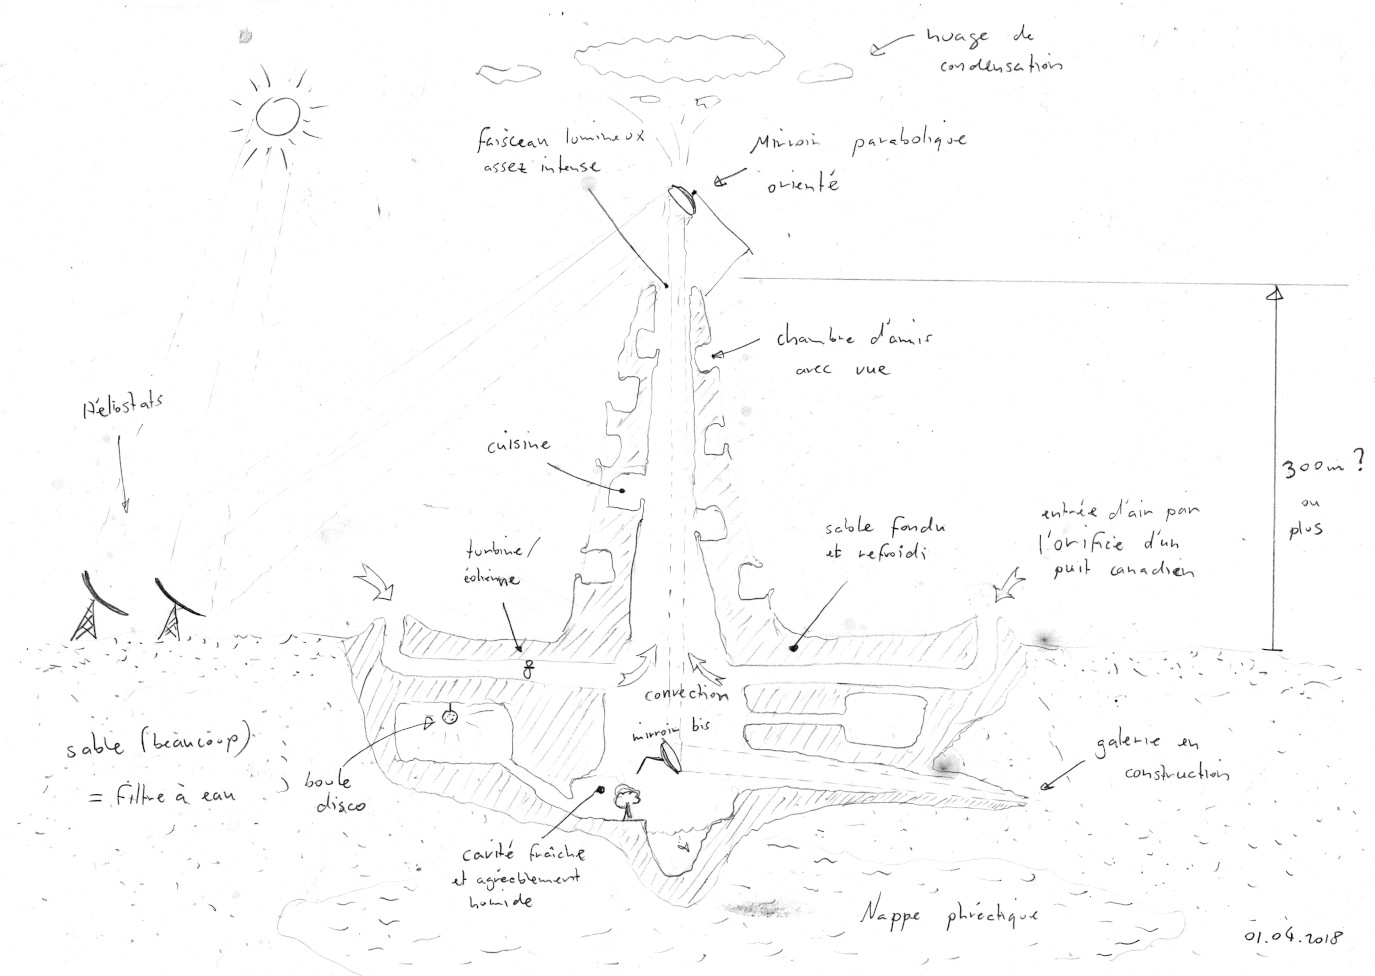 nuage de
condensation
faisceau lumineux
assez intense
Mirroir parabolique
orienté
chambre d'amis
avec vue
Héliostats
cuisine
300m ?
ou
plus
entrée d'air par
l'orifice d'un
puit canadien
sable fondu
et refroidi
turbine/
éolienne
convection
mirroir bis
sable (beaucoup)
= filtre à eau
boule
disco
galerie en
construction
cavité fraîche
et agréablement
humide
Nappe phréatique
01.04.2018